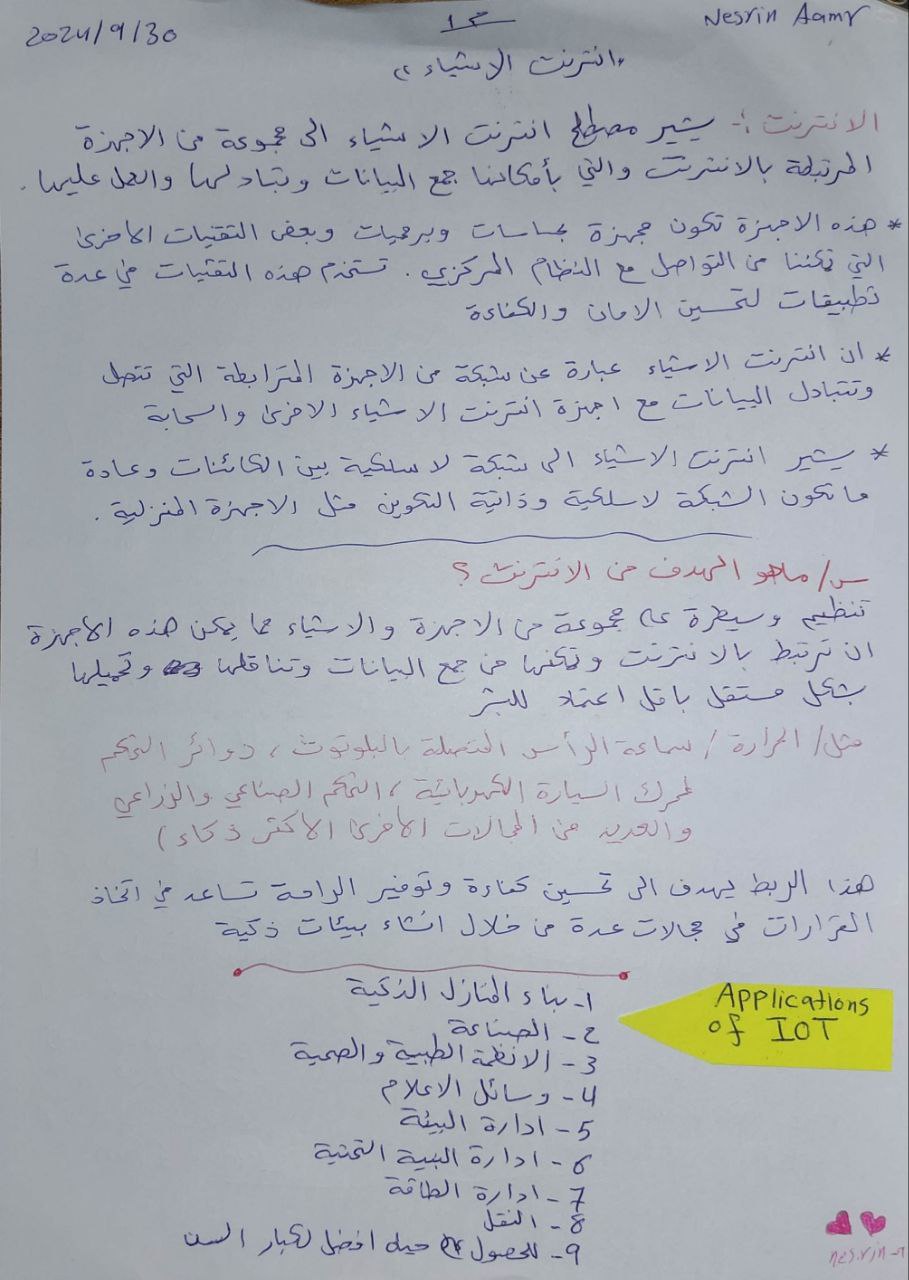 Nesrin Aamr
محـ1
2024/9/30
"انترنت الاشياء"
الانترنت :- يشير مصطلح انترنت الاشياء الى مجموعة من الاجهزة
المرتبطة بالانترنت والتي بأمكاننا جمع البيانات وتبادلها والعمل عليها.
* هذه الاجهزة تكون مجهزة بحساسات وبرمجيات وبعض التقنيات الأخرى
التي تمكننا من التواصل مع النظام المركزي. تستخدم هذه التقنيات في عدة
تطبيقات لتحسين الامان والكفاءة
* ان انترنت الاشياء عبارة عن شبكة من الاجهزة المترابطة التي تتصل
وتتبادل البيانات مع اجهزة انترنت الاشياء الاخرى والسحابة
* يشير انترنت الاشياء الى شبكة لاسلكية بين الكائنات وعادة
ما تكون الشبكة لاسلكية وذاتية التكوين مثل الاجهزة المنزلية.
س/ ماهو الهدف من الانترنت؟
تنظيم وسيطرة على مجموعة من الاجهزة والاشياء مما يمكن هذه الأجهزة
ان ترتبط بالانترنت وتمكنها من جمع البيانات وتناقلها وتحميلها
بشكل مستقل باقل اعتماد للبشر
مثل/ الحرارة / سماعة الرأس المتصلة بالبلوتوث، دوائر التحكم
لمحرك السيارة الكهربائية، التحكم الصناعي والزراعي
والعديد من المجالات الأخرى الأكثر ذكاء)
هذا الربط يهدف الى تحسين كفاءة وتوفير الراحة تساعد في اتخاذ
القرارات في مجالات عدة من خلال انشاء بيئات ذكية
Applications
of IOT
1- بناء المنازل الذكية
2- الصناعة
3- الانظمة الطبية والصحية
4- وسائل الاعلام
5- ادارة البيئة
6- ادارة البية التحتية
7- ادارة الطاقة
8- النقل
9- للحصول على حياه افضل لكبار السن
nesrin